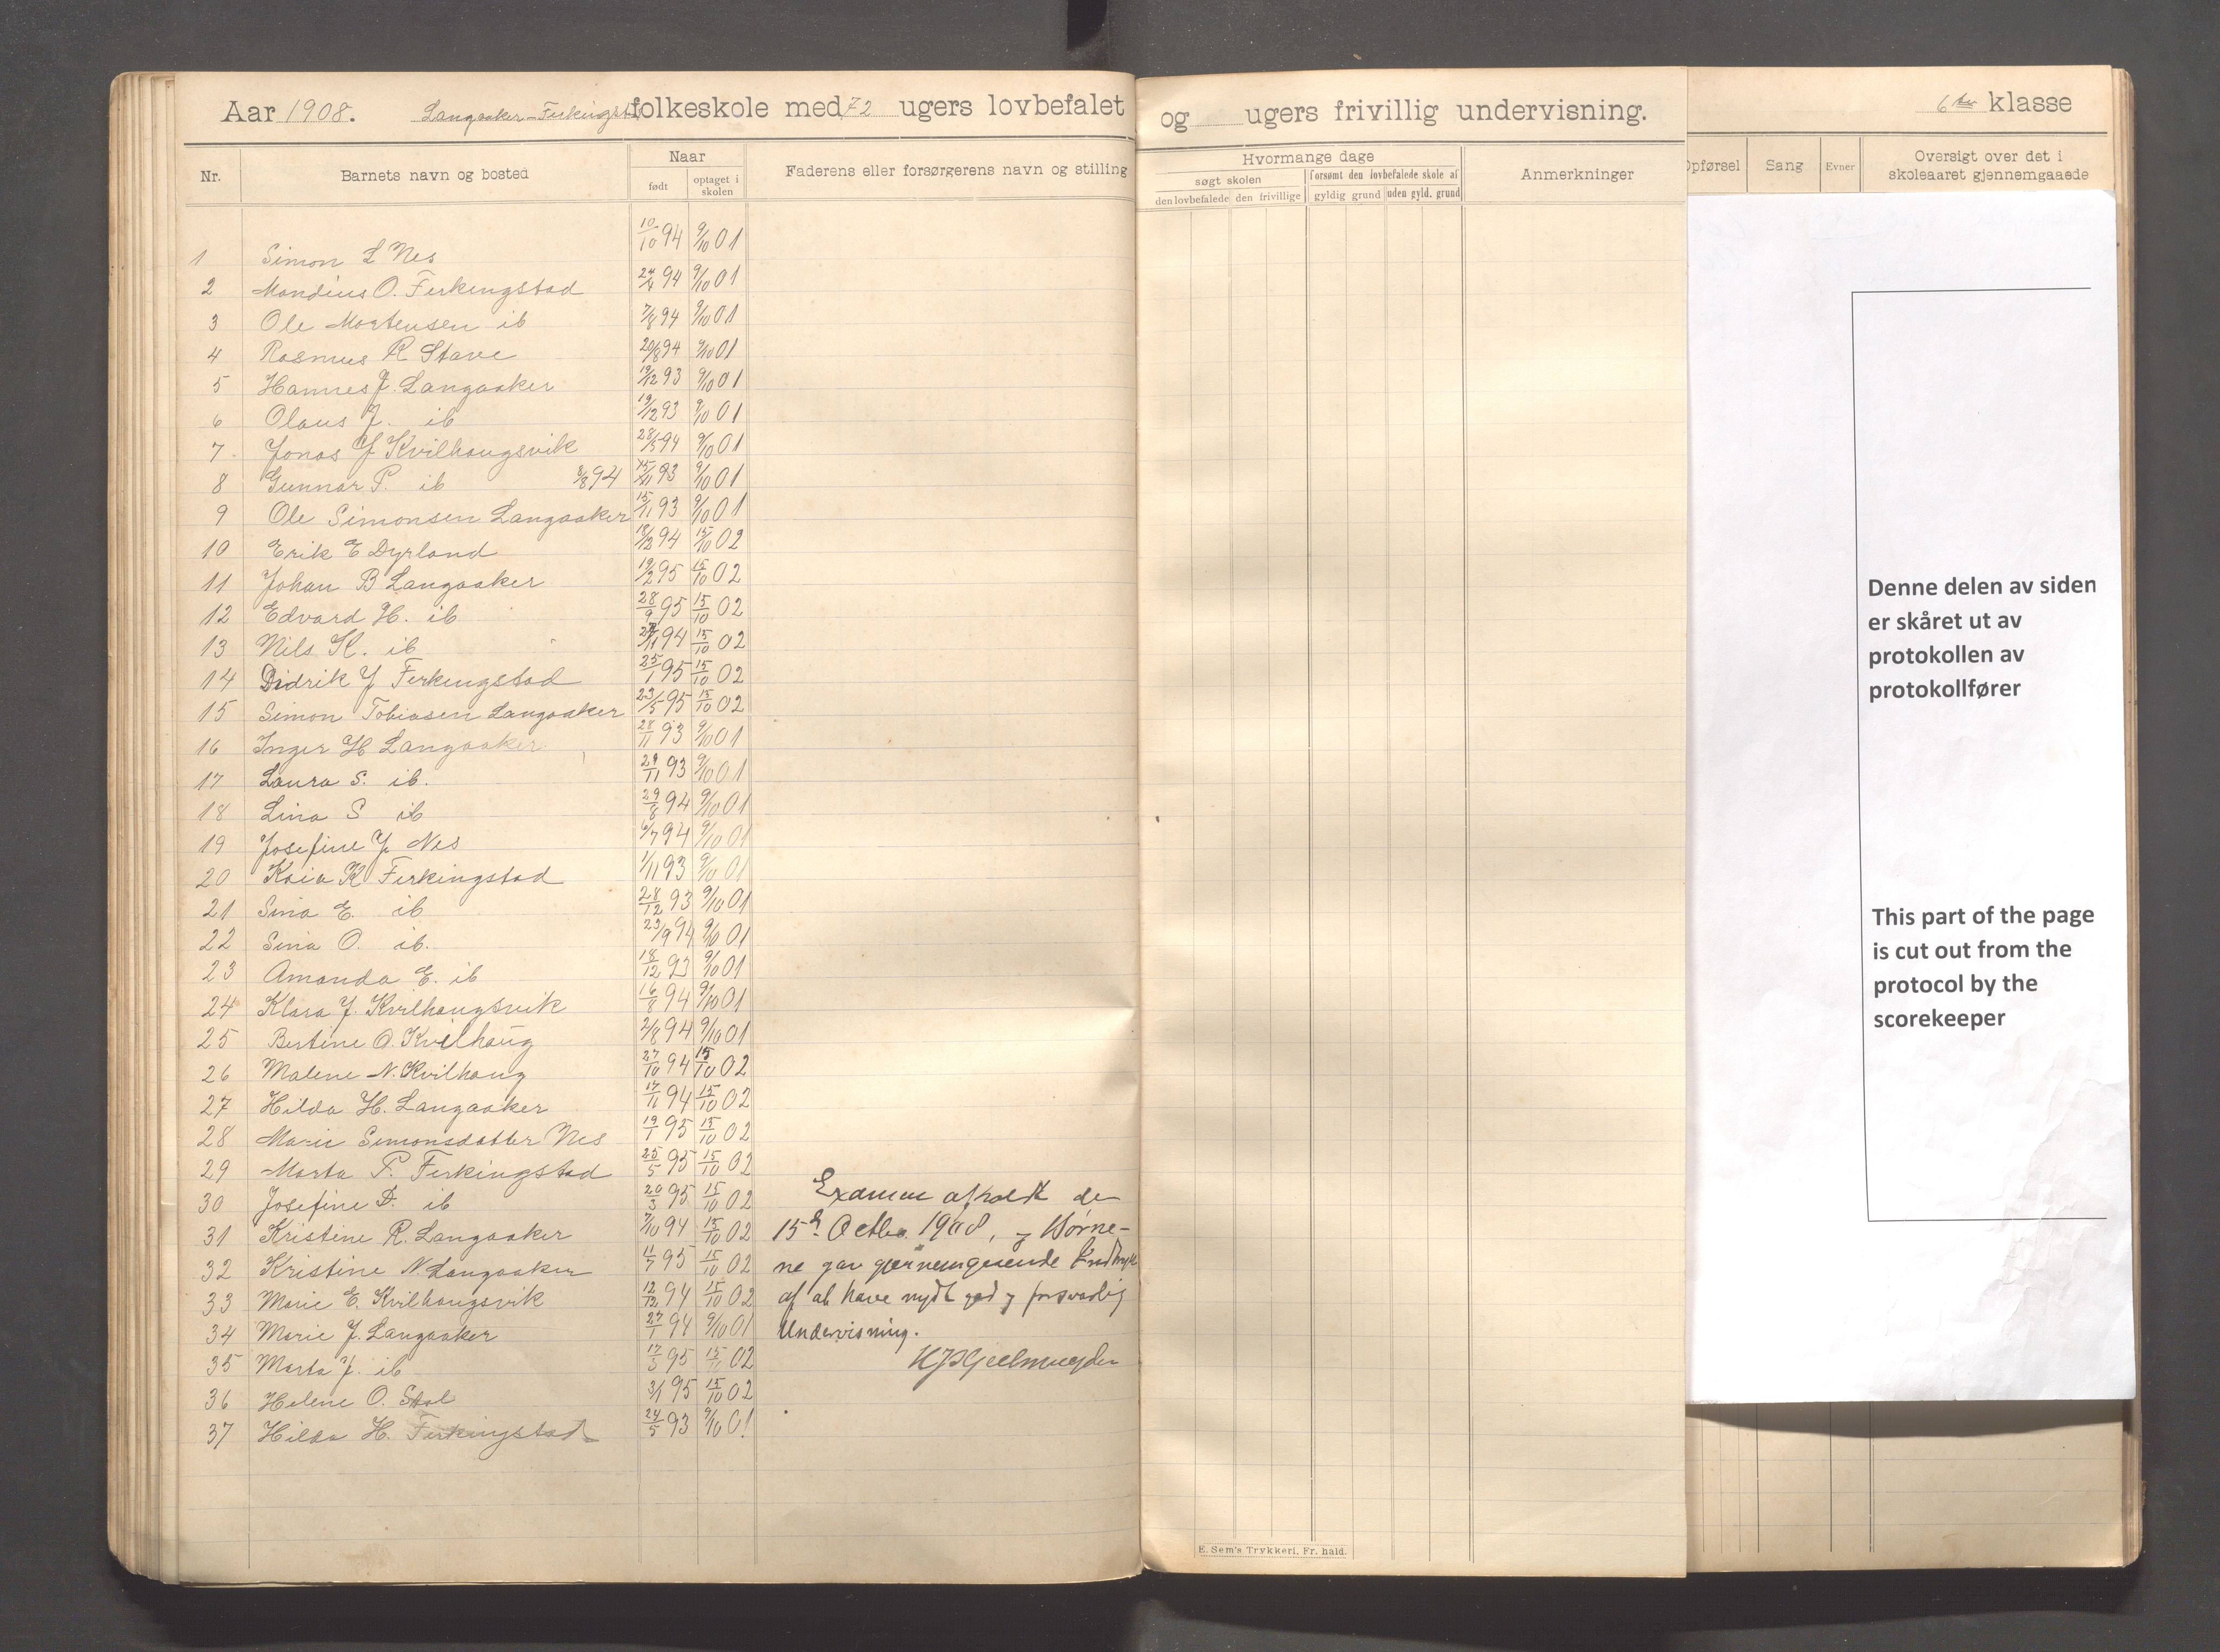 Aar 1908. Langaaker-Ferkingst. folkeskole med 72 ugers lovbefalet og ugers frivillig undervisning. 6te klasse
Nr. Barnets navn og bosted Naar født optaget i skolen Faderens eller forsørgerens navn og stilling
Hvormange dage søgt skolen den lovbefalede den frivillige forsømt den lovbefalede skole af gyldig grund uden gyld. grund Anmerkninger
Opførsel Sang Evner Oversigt over det i skoleaaret gjennemgaaede
1 Simon L Nes 10/10 94 9/10 01
2 Mandius O. Ferkingstad 24/4 94 9/10 01
3 Ole Mortensen ib 7/8 94 9/10 01
4 Rasmus R Stave 20/8 94 9/10 01
5 Hannes J. Langaaker 19/12 93 9/10 01
6 Olaus J. ib 19/12 93 9/10 01
7 Jonas J Kvilhaugsvik 28/5 94 9/10 01
8 Gunnar P. ib 3/8 94 15/11 93 9/10 01
9 Ole Simonsen Langaaker 15/11 93 9/10 01
10 Erik E Dyrland 18/12 94 15/10 02
11 Johan B Langaaker 19/2 95 15/10 02
12 Edvard H. ib 28/9 95 15/10 02
13 Nils K. ib 94 15/10 02
14 Didrik J Ferkingstad 25/1 95 15/10 02
15 Simon Tobiasen Langaaker 23/5 95 15/10 02
16 Inger H Langaaker 28/11 93 9/10 01
17 Laura S. ib. 29/11 93 9/10 01
18 Lina S ib 29/8 94 9/10 01
19 Josefine J. Nes 6/7 94 9/10 01
20 Kaia K Ferkingstad 1/11 93 9/10 01
21 Sina E. ib 28/12 93 9/10 01
22 Sina O. ib. 23/9 94 9/10 01
23 Amanda E. ib 18/12 93 9/10 01
24 Klara J. Kvilhaugsvik 16/8 94 9/10 01
25 Bertine O. Kvilhaug 2/8 94 9/10 01
26 Malene N. Kvilhaug 27/10 94 15/10 02
27 Hilda H. Langaaker 17/11 94 15/10 02
28 Marie Simonsdatter Nes 19/1 95 15/10 02
29 Marta P. Ferkingstad 25/5 95 15/10 02
30 Josefine D. ib 20/3 95 15/10 02
31 Kristine R. Langaaker 7/10 94 15/10 02
32 Kristine N. Langaaker 11/7 95 15/10 02
33 Marie E. Kvilhaugsvik 12/12 94 15/10 02
34 Marie J. Langaaker 27/1 94 9/10 01
35 Marta J. ib 17/3 95 02
36 Helene O. Stol 3/1 95 15/10 02
37 Hilda H. Ferkingstad 24/5 93 9/10 01
Examen afholdt de
15d Octbr. 1908, og Børne-
ne gav gjennemgaaende Indtryk
af at have nydt god og forsvarlig
Undervisning.
HJGeelmuyden
E. Sem's Trykkeri, Fr. hald.
Denne delen av siden
er skåret ut av
protokollen av
protokollfører
This part of the page
is cut out from the
protocol by the
scorekeeper